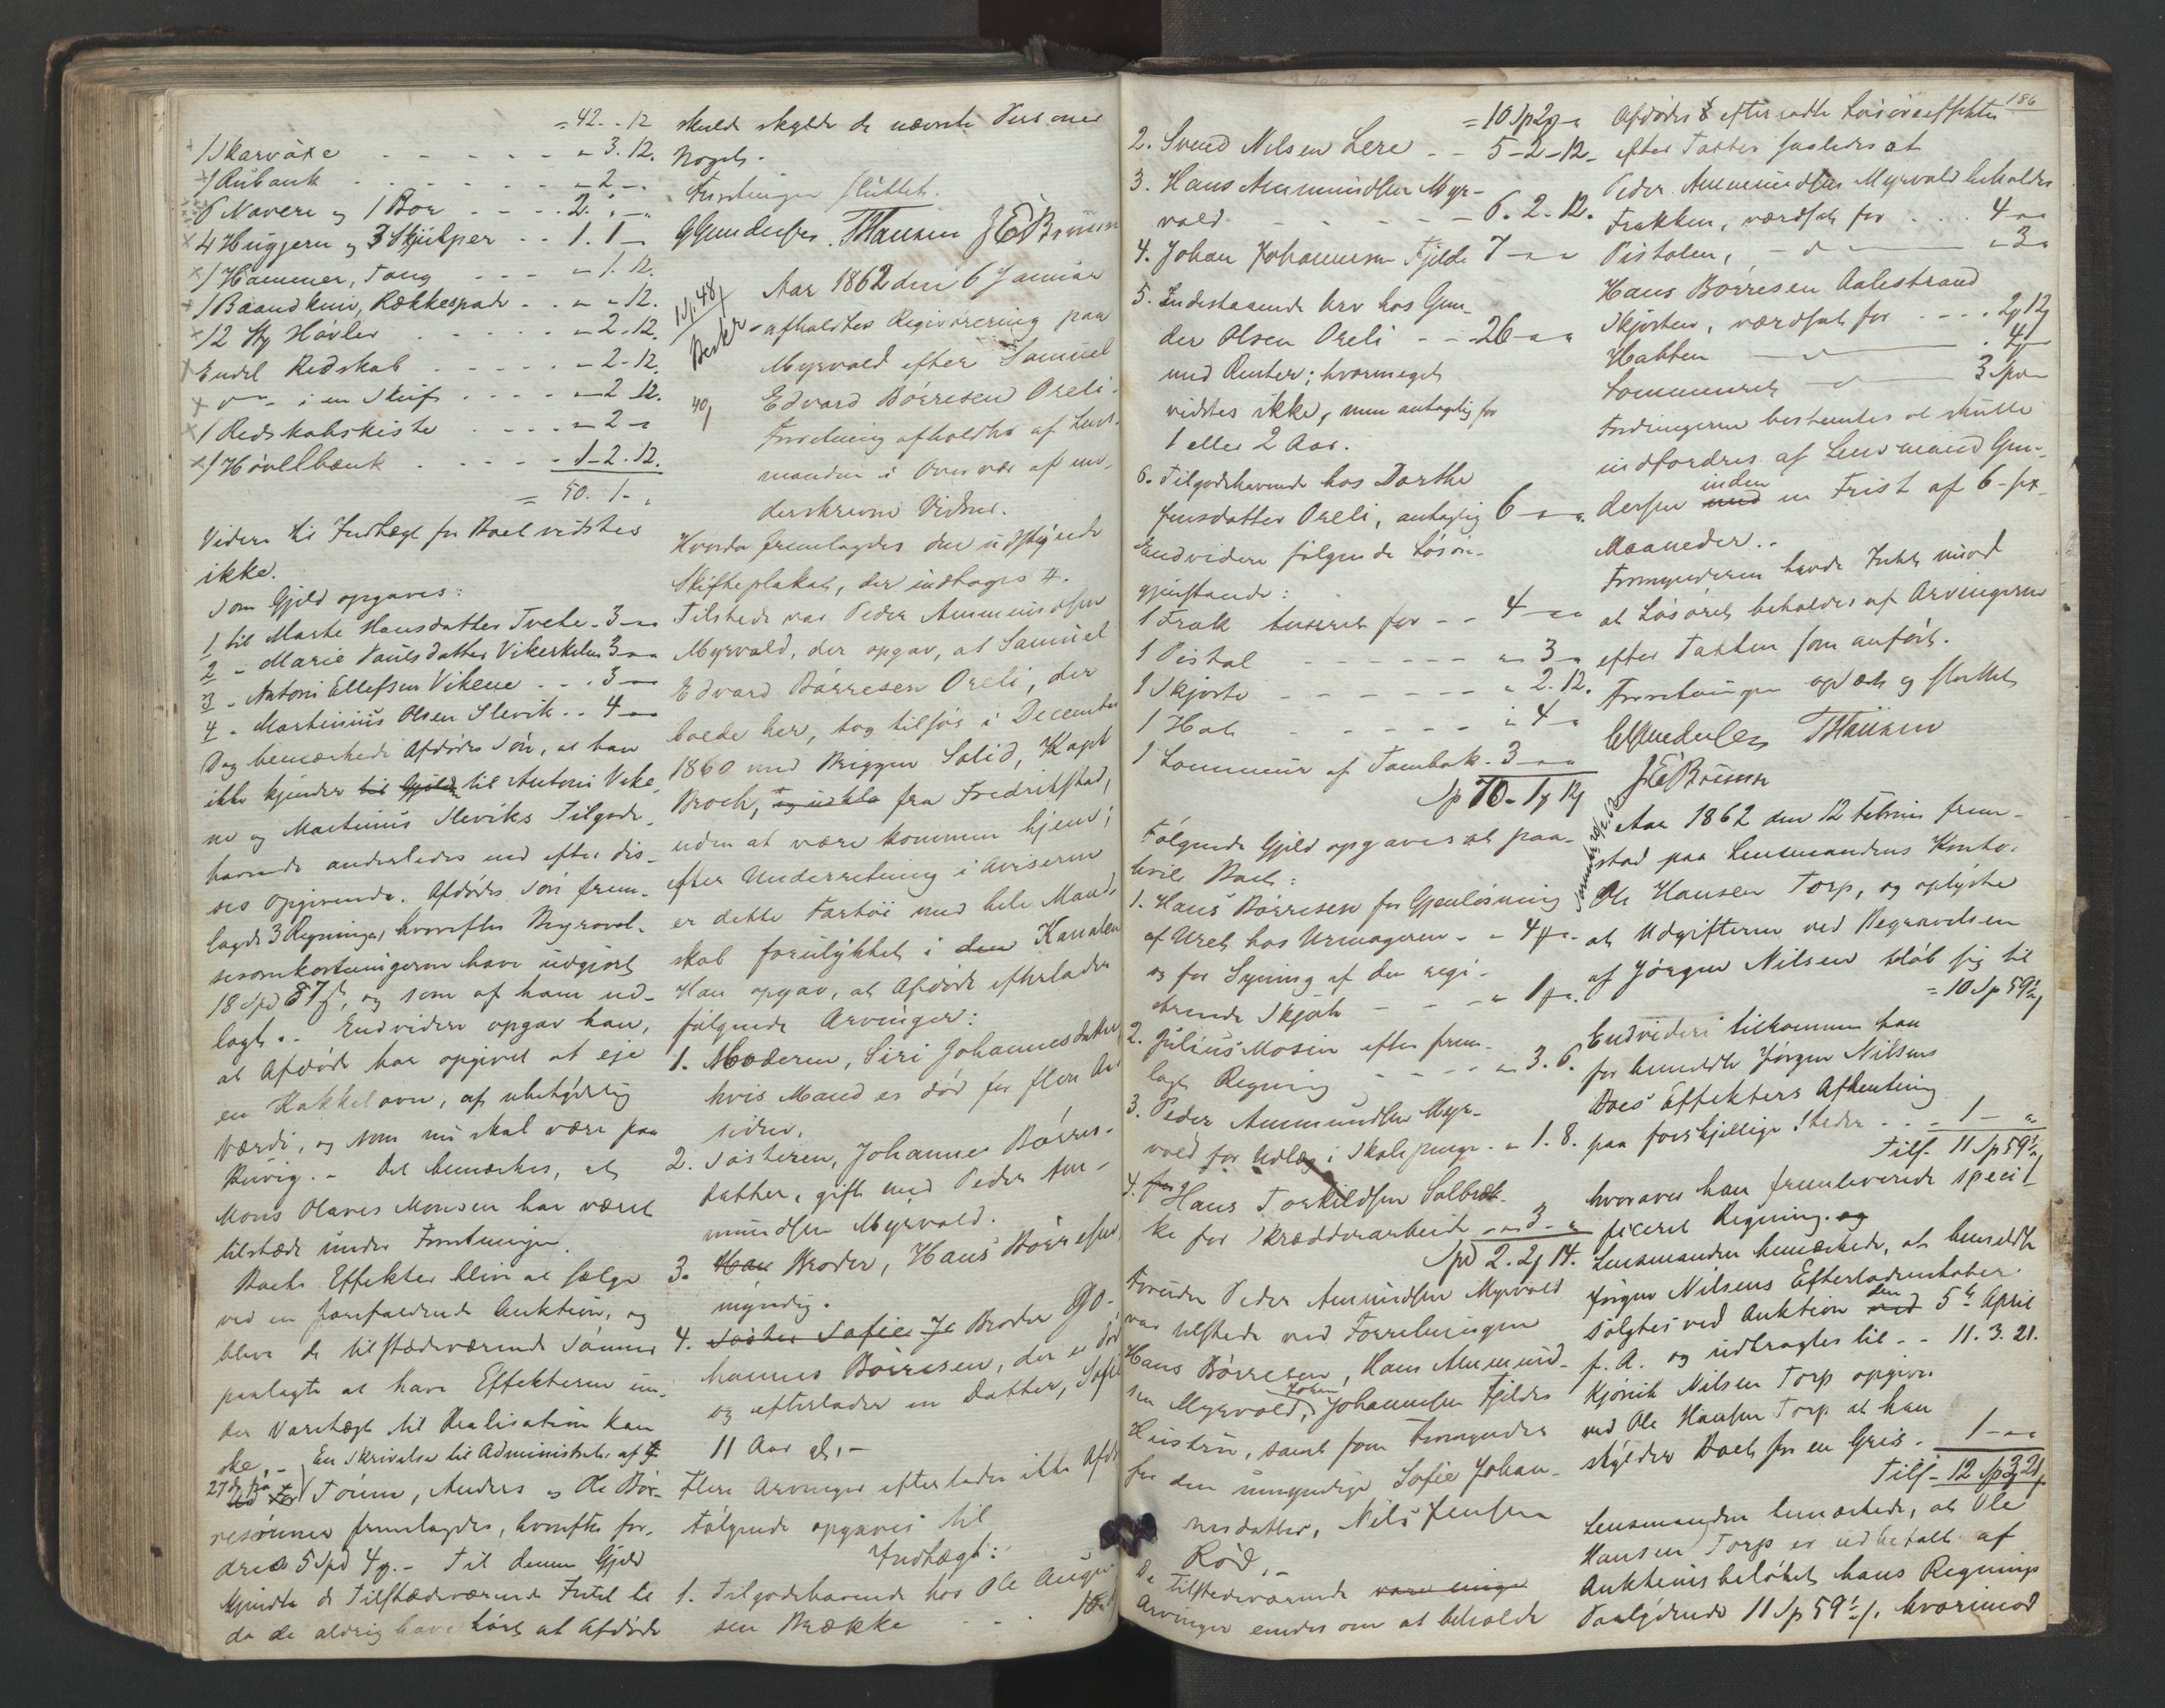 = 42. - 12
1 Skarvöxe - - - - - - " 3. 12.
1 Rubank - - - - - - " 2 - .
6 Navere og 1 Bor - - - - 2. " - "
4 Huggjern og 3 Skjølper - - 1. 1 -
1 Hammer, Tang - - - " 1. 12.
1 Baandkniv, Rækkespade - - " " 12.
12 Stkr Høvler - - - - - " 2. 12.
Endel Redskab - - - - - " 2 - 12.
do i en Skuf - - - - " 2 12.
1 Redskabskiste - - - - " 2 - "
1 Høvelbænk - - - - - 1 - 2. 12.
= 50. 1 - "
Videre til Indtægt for Boet vidstes
ikke.
Som Gjeld opgaves:
1 til Marte Hansdatter Tvete - 3 - " "
2 - Marie Paulsdatter Vikerkilen 3 - " "
3 - Antoni Ellefsen Vikene - - . 3 - " "
4 - Martinius Olsen Slevik - - 4 - " "
Dog bemærkede Afdødes Søn, at han
ikke kjender til Gjeld til Antoni Vike-
ne og Martinius Sleviks Tilgode-
havende anderledes end efter dis-
ses Opgivende. Afdødes Søn frem-
lagde 3 Regninger, hvorefter Begravel-
sesomkostningerne have udgjort
18 Spd 87 s, og som af ham ud-
lagt. - Endvidere opgav han,
at Afdøde har opgivet at eje
en Kakkelovn, af ubetydelig
Værdi, og som nu skal være paa
Buvig. - Det bemærkes, at
Mons Olaves Monsen har været
tilstæde under Forretningen.
Boets Effekter bliver at sælge
ved en foranstaltende Auktion, og
bleve de tilstædeværende Sønner
paalagte at have Effekterne un-
der Varetægt til Realisation kan
ske. - En Skrivelse til Administrator af
27 ds fra Tømm, Anders og Ole Bør-
resønner fremlagdes, hvorefter for-
dres 5 Spd 4 . - Til denne Gjeld
kjendte de Tilstædeværende Intet til
da de aldrig have hørt at Afdøde
skulde skylde de nævnte Personer
Noget.
Forretningen sluttet.
G Gundersen. T Hansen J E Brunsen
10/1. 48/
Beskr
40/
Aar 1862 den 6 Januar
afholdtes Registrering paa
Myrvold efter Samuel
Edvard Börresen Oreli.
Forretning afholdtes af Lens-
manden i Overvær af un-
derskrevne Vidner.
Hvorda fremlagdes den udstedte
Skifteplakat, der indtages #.
Tilstede var Peder Ammundsen
Myrvold, der opgav, at Samuel
Edvard Börresen Oreli, der
boede her, tog tilsjøs i December
1860 med Briggen Solid, Kapt
Broch, og udkla fra Fredrikstad,
uden at være kommen hjem;
efter Underretning i Aviserne
er dette Fartöi med hele Mand-
skab forulykket i den Kanalen
Han opgav, at Afdøde efterlader
følgende Arvinger:
1. Moderen, Siri Johannesdatter
hvis Mand er død for flere Aar
siden.
2. Søsteren, Johanne Børres-
datter, gift med Peder Am-
mundsen Myrvold.
3. Han Broder, Hans Börresen,
myndig.
4. Søster Sofie Jo Broder Jo-
hannes Börresen, der er död
og efterlader en Datter, Sofie
11 Aar gl. -
Flere Arvinger efterlader ikke Afdøde
Følgende opgaves til
Indtægt:
1. Tilgodehavende hos Ole August-
sen Brække - - . 10
186
= 10 Sp 2 "
2. Svend Nilsen Lere - - 5 - 2 - 12 -
3. Hans Ammundsen Myr-
vold - - - - - 6. 2. 12.
4. Johan Johannesen Fjelde 7 - " "
5. Indestaaende Arv hos Gun-
der Olsen Oreli - - 26 - " "
med Renter; hvormeget
vidstes ikke, men antagelig for
1 eller 2 Aar.
6. Tilgodehavende hos Dorthe
Jensdatter Oreli, antagelig 6 - " ".
Endvidere følgende Løsøre-
gjenstande:
1 Frak taxeret for - - 4 - " "
1 Pistol - - - - - " 3 - "
1 Skjorte - - - - - " 2. 12.
1 Hat - - - - - " 4 - "
1 Lommeur af Tombak - 3 - " "
Sp 70 - 1 12
Følgende Gjeld opgaves at paa-
hvile Boet:
1. Hans Børresen for Gjenløsning
af Uret hos Urmageren - - 4 .
og for Syning af den regi-
strerede Skjorte - - - " 1 .
2. Julius Mosin efter frem-
lagt Regning - - - " 3. 6.
3. Peder Ammundsen Myr-
vold for Udlæg i Skolepenge - " 1. 8.
4. for Hans Torkildsen Solbræk-
ke for Skrædderarbeide - " 3 - "
Spd 2. 2 14.
Foruden Peder Ammundsen Myrvold
var tilstede ved Forretningen
Hans Börresen, Hans Ammund-
sen Myrvold, Johan Johannesen Fjeldes
Hustru, samt som Formynder
for den umyndige Sofie Johan-
nesdatter, Nils Jensen
Röd. -
De tilstedeværende vare enige
Arvinger enedes om at beholde
Afdødes efterladte Løsøreeffekter
efter Taxten saaledes at
Peder Ammundsen Myrvold beholder
Frakken, værdsat for - - . 4 - " "
Pistolen, - d - " 3 "
Hans Børresen Aalestrand
Skjorten, værdsat for - - - 2 12
Hatten - d - . 4 -
Lommeuret - d - 3 Spd -
Fordringerne bestemtes at skulle
indfordres af Lensmand Gun-
dersen med inden en Frist af 6 - sex
Maaneder. -
Formynderen havde Intet imod
at Løsöret beholdes af Arvingerne
efter Taxten som anført.
Forretningen oplæst og sluttet.
G Gundersen T Hansen
J E Brunsen
Aar 1862 den 12 Februar frem-
stod paa Lensmandens Kontor
Ole Hansen Torp, og oplyste
at Udgifterne ved Begravelsen
af Jörgen Nilsen beløb sig til
= 10 Sp 59½
Endvidere tilkommer han
for bemeldte Jörgen Nilsens
Boes Effekters Afhentning
paa forskjellige Steder - - - 1 - "
Tils. 11 Sp 59½
hvorover han fremleverede speci-
ficeret Regning. og
Lensmanden bemærkede, at bemeldte
Jörgen Nilsens Efterladenskaber
solgtes ved Auktion ved den 5te April
f. A. og udbragtes til - - 11. 3. 21.
Kjönik Nilsen Torp opgiver
ved Ole Hansen Torp at han
skylder Boet for en Gris - 1 - " "
Tils. - 12 Sp 3 21
Lensmanden bemærkede, at Ole
Hansen Torp er udbetalt af
Auktionsbeløbet hans Regnings
Paalydende 11 Sp 59½ s. hvorimod